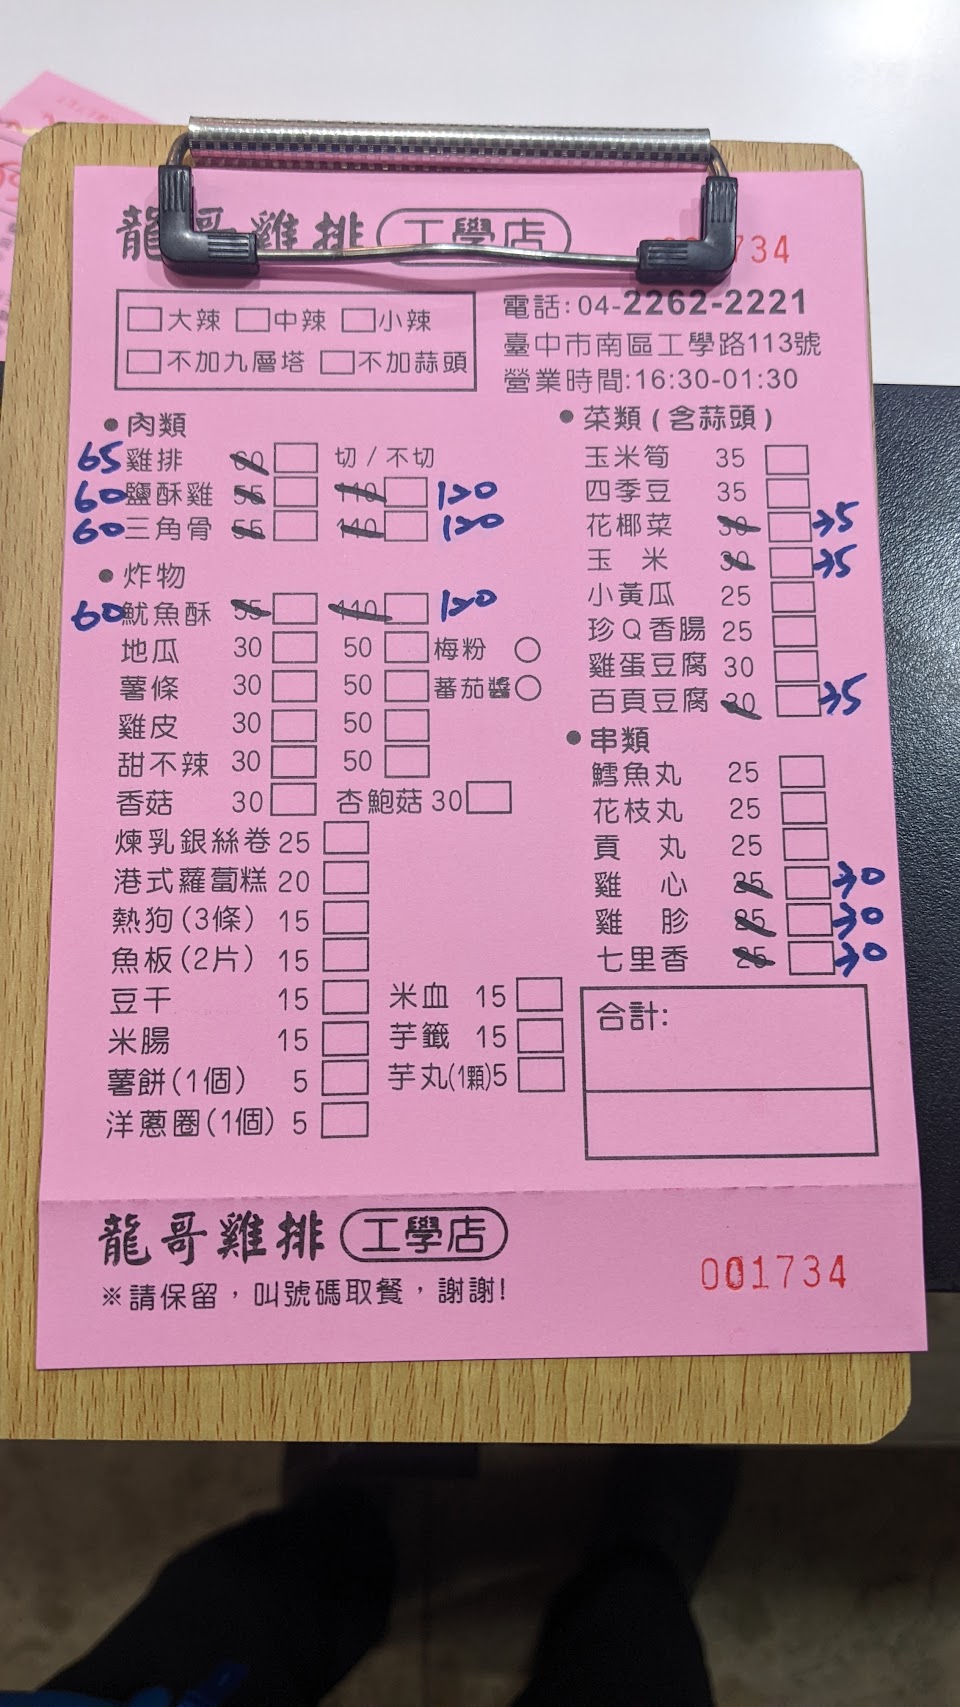 龍哥雞排 工學店
734
□大辣 □中辣 □小辣
□不加九層塔 □不加蒜頭
電話:04-2262-2221
臺中市南區工學路113號
營業時間:16:30-01:30
●肉類
65 雞排 60 □ 切/不切
60 鹽酥雞 55 □ 110 □ 120
60 三角骨 55 □ 110 □ 120
●炸物
60 魷魚酥 55 □ 110 □ 120
地瓜 30 □ 50 □ 梅粉 ○
薯條 30 □ 50 □ 蕃茄醬 ○
雞皮 30 □ 50 □
甜不辣 30 □ 50 □
香菇 30 □ 杏鮑菇 30 □
煉乳銀絲卷 25 □
港式蘿蔔糕 20 □
熱狗(3條) 15 □
魚板(2片) 15 □
豆干 15 □ 米血 15 □
米腸 15 □ 芋籤 15 □
薯餅(1個) 5 □ 芋丸(1顆)5 □
洋蔥圈(1個) 5 □
●菜類(含蒜頭)
玉米筍 35 □
四季豆 35 □
花椰菜 30 □ 35
玉 米 30 □ 35
小黃瓜 25 □
珍Q香腸 25 □
雞蛋豆腐 30 □
百頁豆腐 30 □ 35
●串類
鱈魚丸 25 □
花枝丸 25 □
貢 丸 25 □
雞 心 25 □ 30
雞 胗 25 □ 30
七里香 25 □ 30
合計:
龍哥雞排 工學店
※請保留,叫號碼取餐,謝謝!
001734